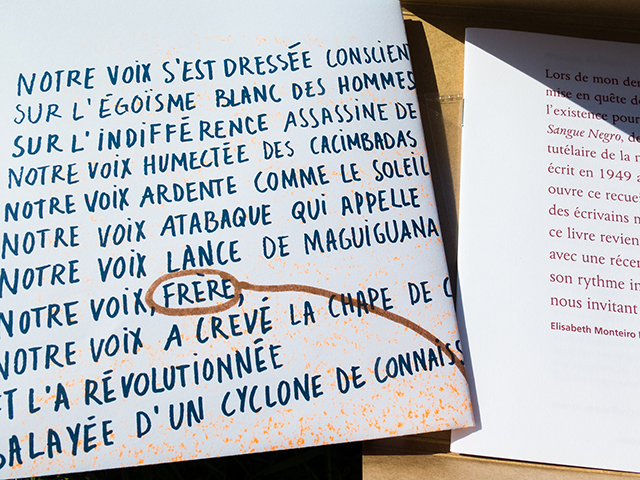 NOTRE VOIX S'EST DRESSÉE CONSCIENT
SUR L'ÉGOÏSME BLANC DES HOMMES
SUR L'INDIFFÉRENCE ASSASSINE DE
NOTRE VOIX HUMECTÉE DES CACIMBADAS
NOTRE VOIX ARDENTE COMME LE SOLEIL
NOTRE VOIX ATABAQUE QUI APPELLE
NOTRE VOIX LANCE DE MAGUIGUANA
NOTRE VOIX, FRÈRE,
NOTRE VOIX A CREVÉ LA CHAPE DE C
ET L'A RÉVOLUTIONNÉE
BALAYÉE D'UN CYCLONE DE CONNAISS
Lors de mon der
mise en quête d
l'existence pour
Sangue Negro, de
tutélaire de la n
écrit en 1949 a
ouvre ce recue
des écrivains n
ce livre revien
avec une récen
son rythme in
nous invitant
Elisabeth Monteiro